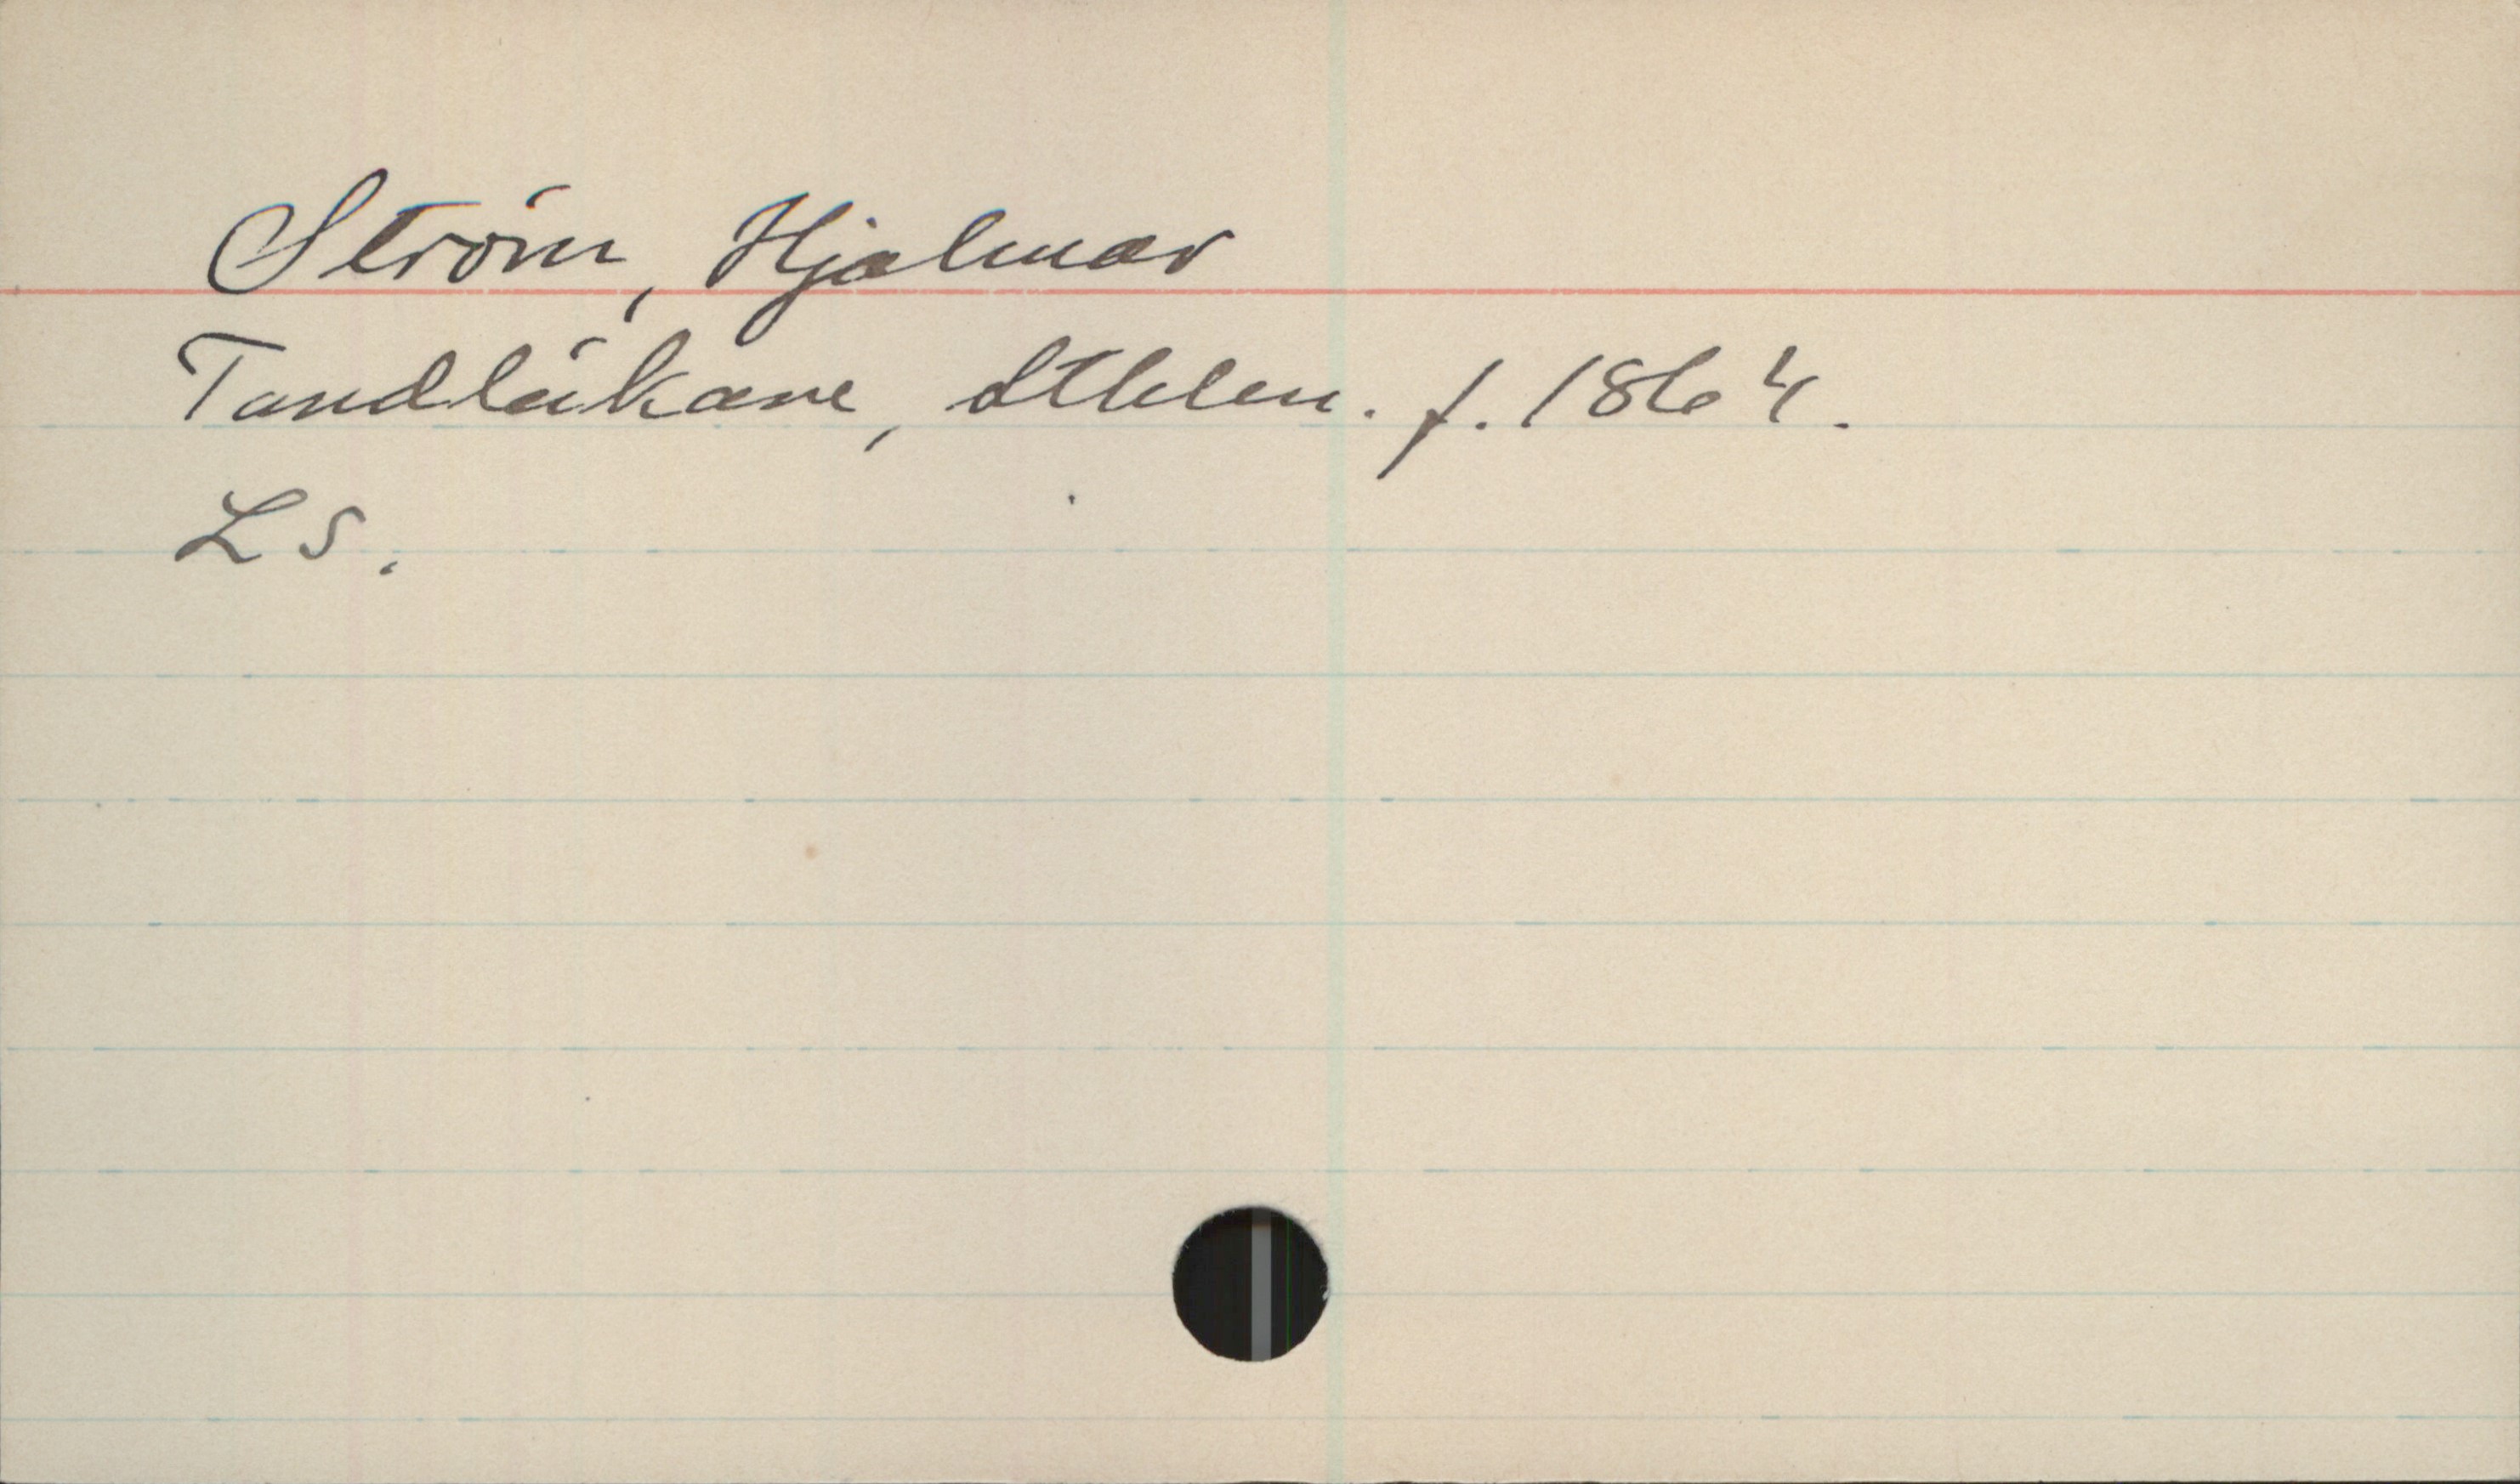 Ström, Hjalmar
Tandläkare, Sthlm. f. 1864.
LS.